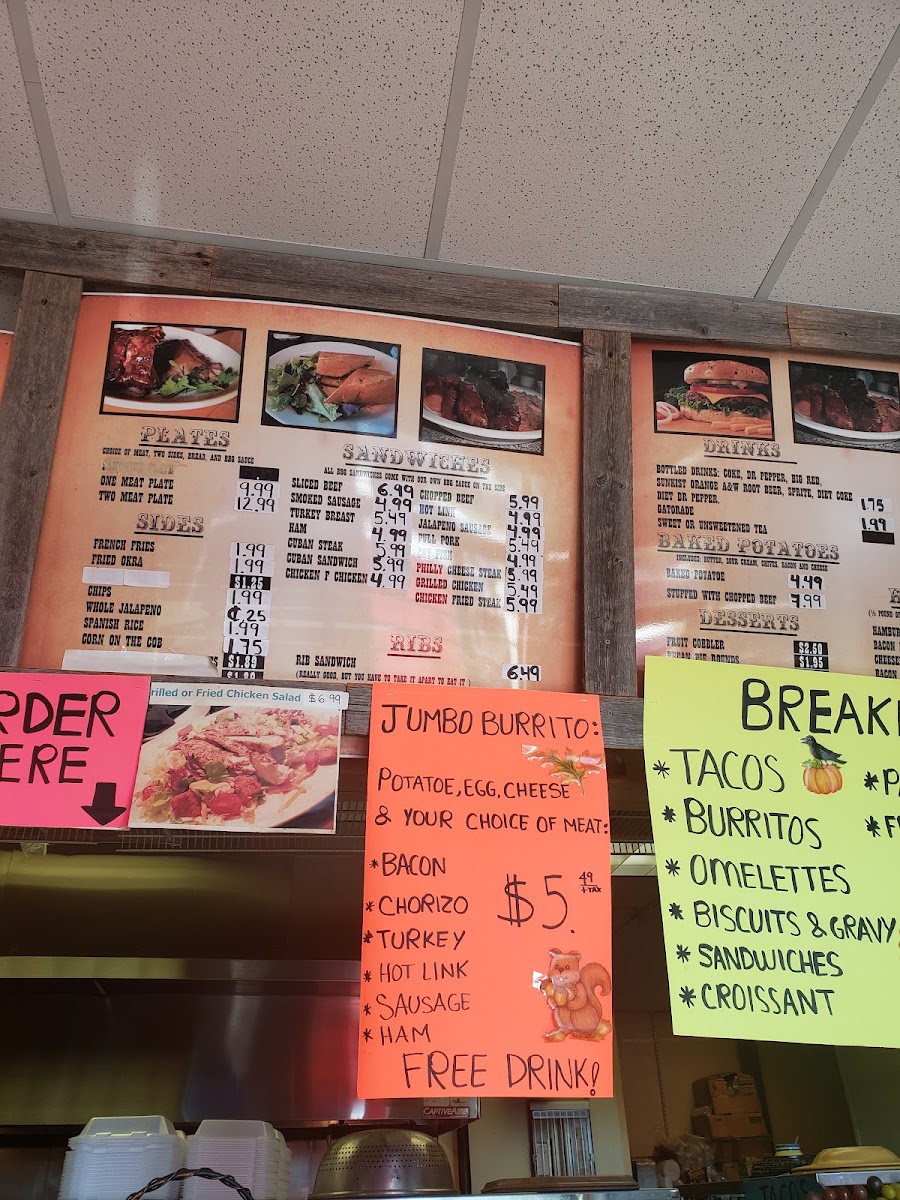 PLATES
CHOICE OF MEAT, TWO SIDES, BREAD, AND BBQ SAUCE
ONE MEAT PLATE 9.99
TWO MEAT PLATE 12.99
SIDES
FRENCH FRIES 1.99
FRIED OKRA 1.99
$1.25
CHIPS 1.99
WHOLE JALAPENO ¢.25
SPANISH RICE 1.99
CORN ON THE COB 1.75
$1.89
SANDWICHES
ALL BBQ SANDWICHES COME WITH OUR OWN BBQ SAUCE ON THE SIDE
SLICED BEEF 6.99
SMOKED SAUSAGE 4.99
TURKEY BREAST 5.49
HAM 4.99
CUBAN STEAK 5.99
CUBAN SANDWICH 5.99
CHICKEN F CHICKEN 4.99
CHOPPED BEEF 5.99
HOT LINK 4.99
JALAPENO SAUSAGE 4.99
PULL PORK 5.49
4.99
PHILLY CHEESE STEAK 5.99
GRILLED CHICKEN 5.49
CHICKEN FRIED STEAK 5.99
RIBS
RIB SANDWICH 6.49
(REALLY GOOD, BUT YOU HAVE TO TAKE IT APART TO EAT IT)
DRINKS
BOTTLED DRINKS: COKE, DR PEPPER, BIG RED,
SUNKIST ORANGE A&W ROOT BEER, SPRITE, DIET COKE
DIET DR PEPPER. 1.75
GATORADE 1.99
SWEET OR UNSWEETENED TEA
BAKED POTATOES
INCLUDES: BUTTER, SOUR CREAM, CHIVES, BACON AND CHEESE
BAKED POTATOE 4.49
STUFFED WITH CHOPPED BEEF 7.99
DESSERTS
FRUIT COBBLER $2.50
PECAN PIE ROUNDS $1.95
HAMBUR
BACON
CHEESE
BACON
RDER
ERE
Grilled or Fried Chicken Salad $6.99
JUMBO BURRITO:
POTATOE, EGG, CHEESE
& YOUR CHOICE OF MEAT:
* BACON
* CHORIZO
* TURKEY
* HOT LINK
* SAUSAGE
* HAM
$5.49 +TAX
FREE DRINK!
BREAK
* TACOS
* BURRITOS
* OMELETTES
* BISCUITS & GRAVY
* SANDWICHES
* CROISSANT
* P
* F
CAPTIVEAIRE
TACOS